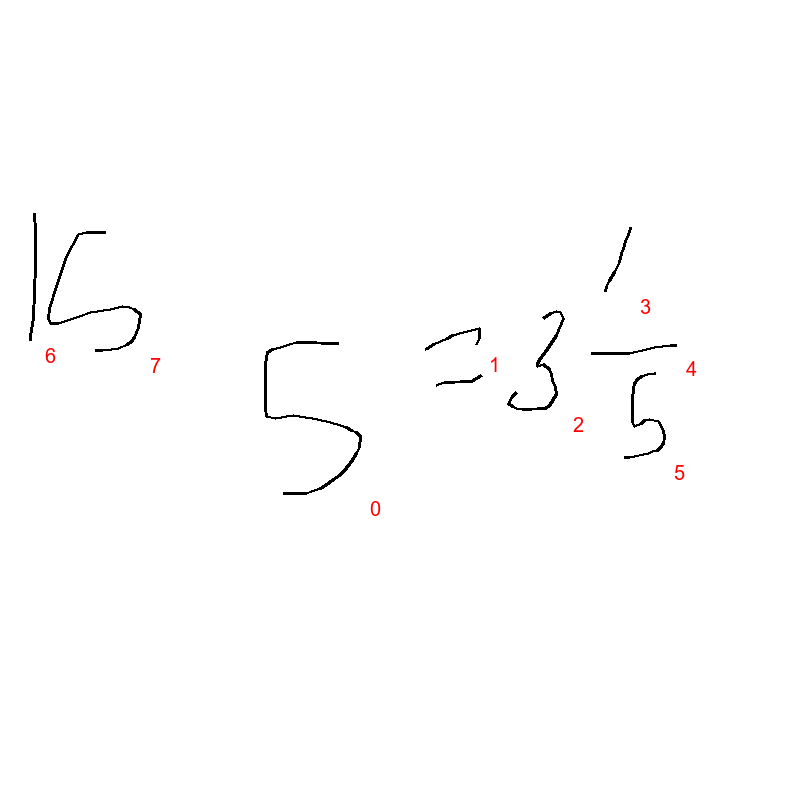 15
5 = 3 1/5
6 7 0 1 2 3 4 5